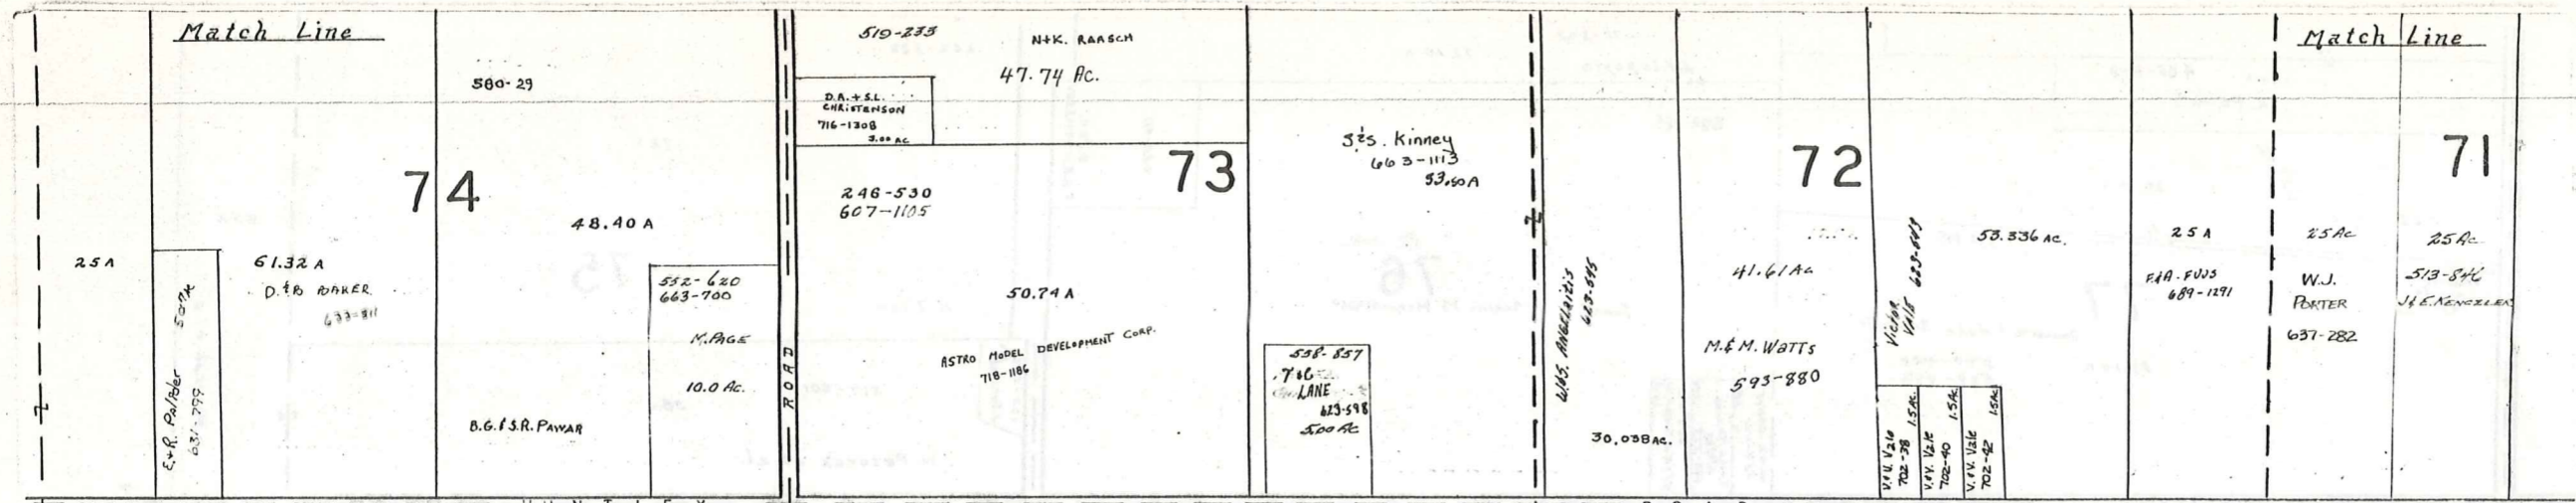 Match Line
25A
74
61.32 A
D. & B
E. & R.
631-799
580-29
48.40 A
552-620
663-700
M. PAGE
10.0 Ac.
B.G. & S.R. PAWAR
ROAD
519-233
N+K. RAASCH
47.74 Ac.
D.A. + S.L.
CHRISTENSON
716-1308
3.00 AC
73
246-530
607-1105
50.74 A
ASTRO MODEL DEVELOPMENT CORP.
718-1186
S & S. Kinney
663-1113
53.60A
558-857
LANE
623-598
5.00 Ac
W. & S. ANGELAITIS
623-595
30.038 AC.
72
41.61 Ac
M. & M. WATTS
593-880
Victor
Vale 623-593
53.336 AC.
V. & V. Vale
702-38 1.5 Ac.
V. & V. Vale
702-40 1.5 Ac
V. & V. Vale
702-42 1.5 Ac
25 A
F. & A. FUSS
689-1291
Match Line
71
25 Ac
W.J.
PORTER
637-282
25 Ac
513-846
J & E. KENCZLER